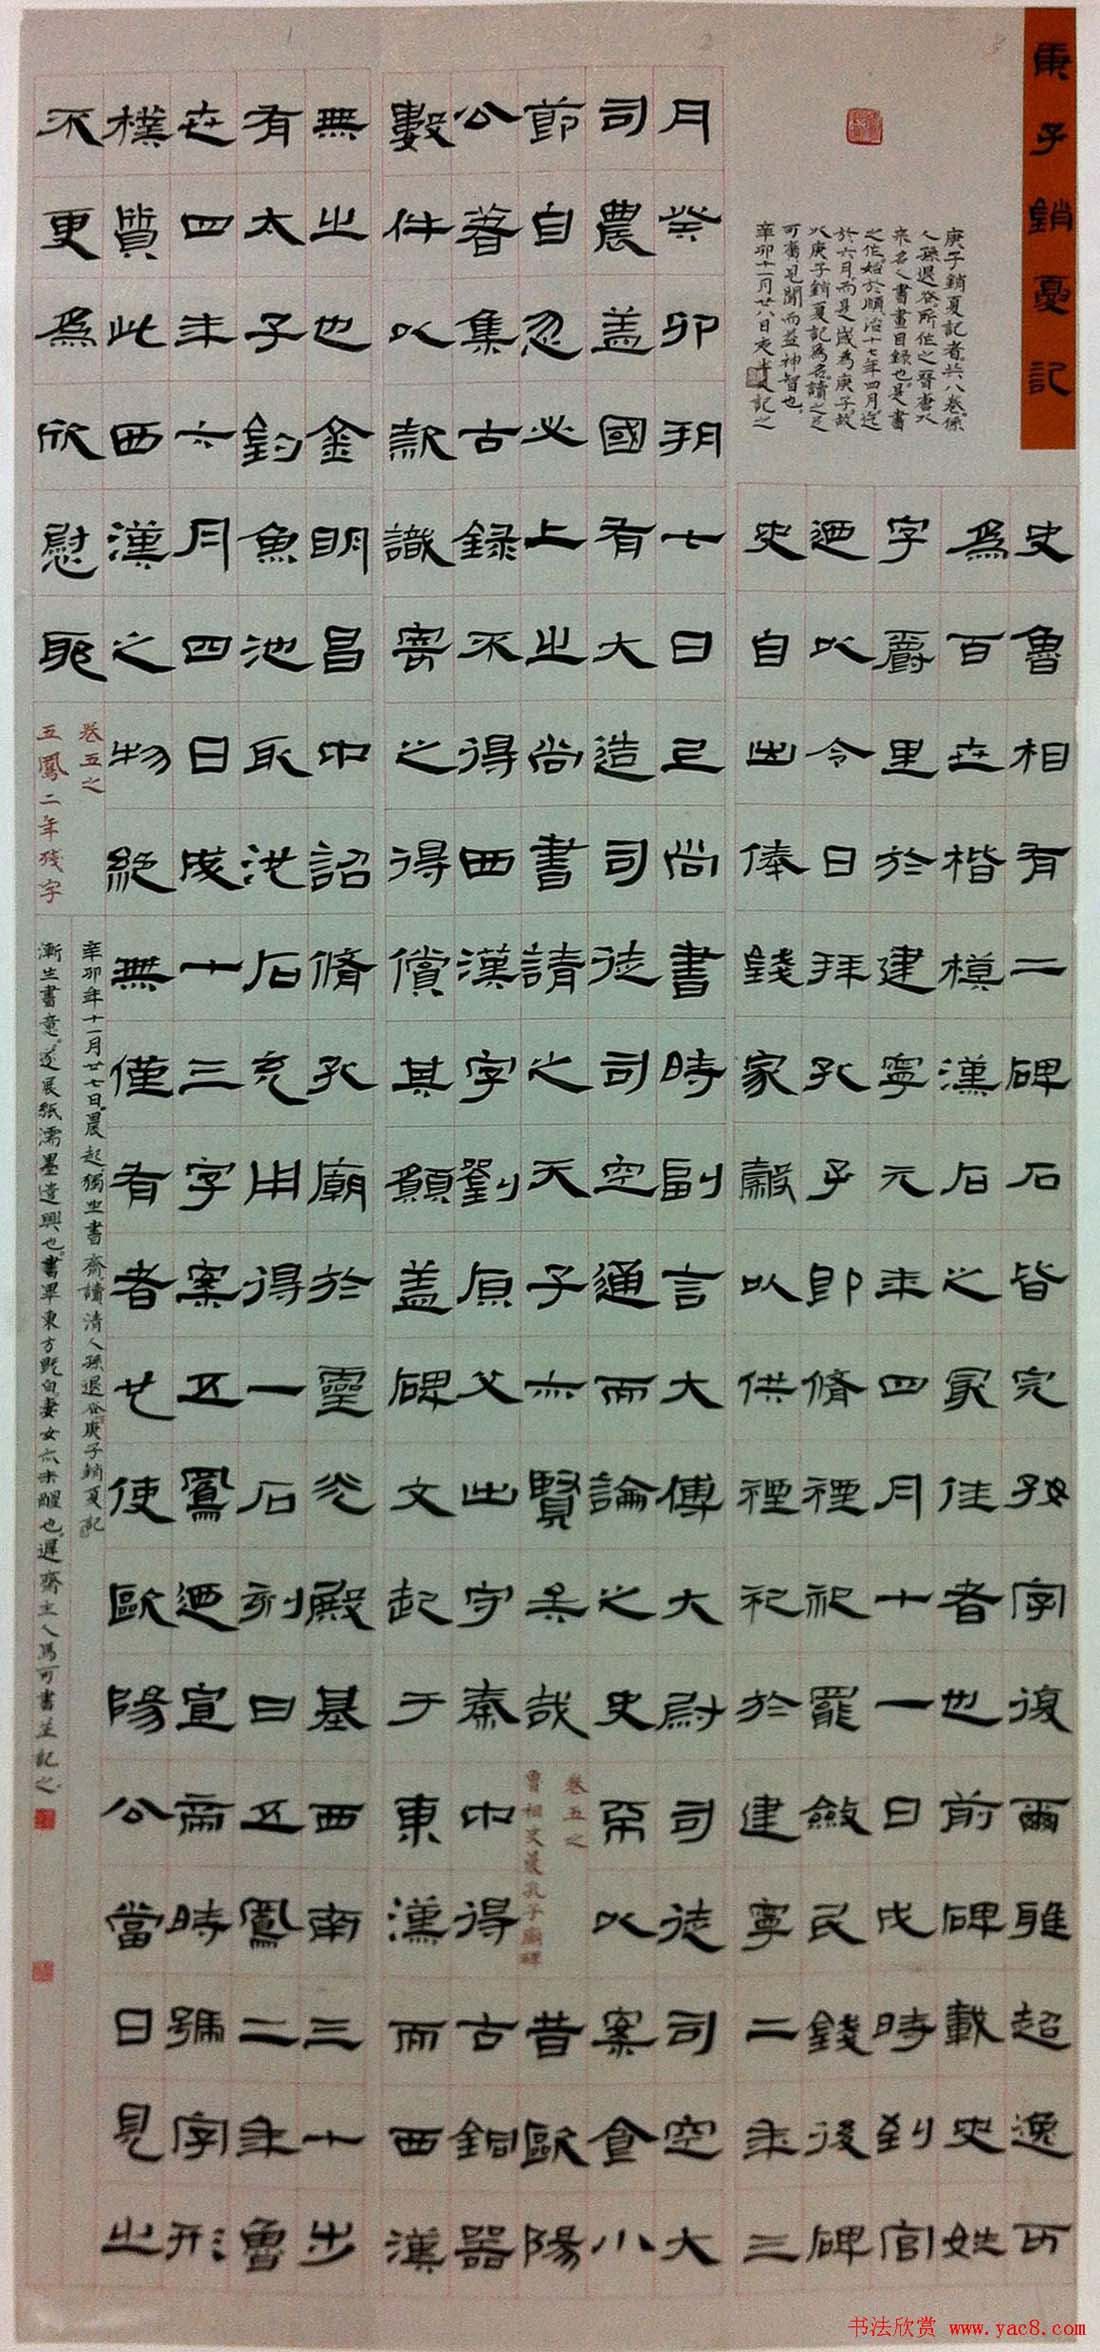 庚子銷夏記
庚子銷夏記者共八卷係
人孫退谷所作之晉唐以
來名人書畫目録也是書
之作始於順治十七年四月迄
於六月而是歲為庚子故
以庚子銷夏記為名讀之足
可廣見聞而益神智也
辛卯十一月廿八日夾記之
史魯相有二碑石皆完好字復爾雅超逸可
為百世楷模漢石之冣佳者也前碑載史姓
字爵里於建寧元年四月十一日戊時到官
迺以令日拜孔子即脩禋祀罷斂民錢後碑
史自出俸錢家穀以供禋祀於建寧二年三
月癸卯朔七日己尚書時副言大傅大尉司徒司空大
司農盖國有大造司徒司空通而論之史以案食小
節自忽必上之尚書請之天子亦賢矣哉
卷五之
魯相史晨孔子廟碑
昔歐陽
公著集古録不得西漢字劉原父出守秦中得古銅器
數件以款識寄之得償其願盖碑文起于東漢而西漢
無之也金明昌中詔脩孔廟於靈光殿基西南三十步
有太子釣魚池取池石充用得一石刻曰五鳳二年魯
世四年六月四日成十三字案五鳳迺宣帝時號字形
樸質此西漢之物絶無僅有者也使歐陽公當日見之
不更為欣慰耶
卷五之
五鳳二年殘字
辛卯年十一月廿七日晨起獨坐書齋讀清人孫退谷庚子銷夏記
漸生書意遂展紙濡墨遣興也書畢東方既白妻女亦未醒也遲齋主人馬可書並記之
书法欣赏 www.yac8.com